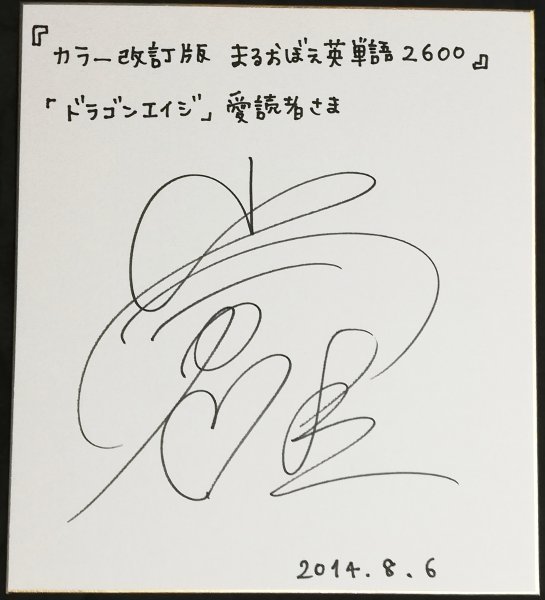 『カラー改訂版 まるおぼえ英単語2600』
「ドラゴンエイジ」愛読者さま
2014.8.6